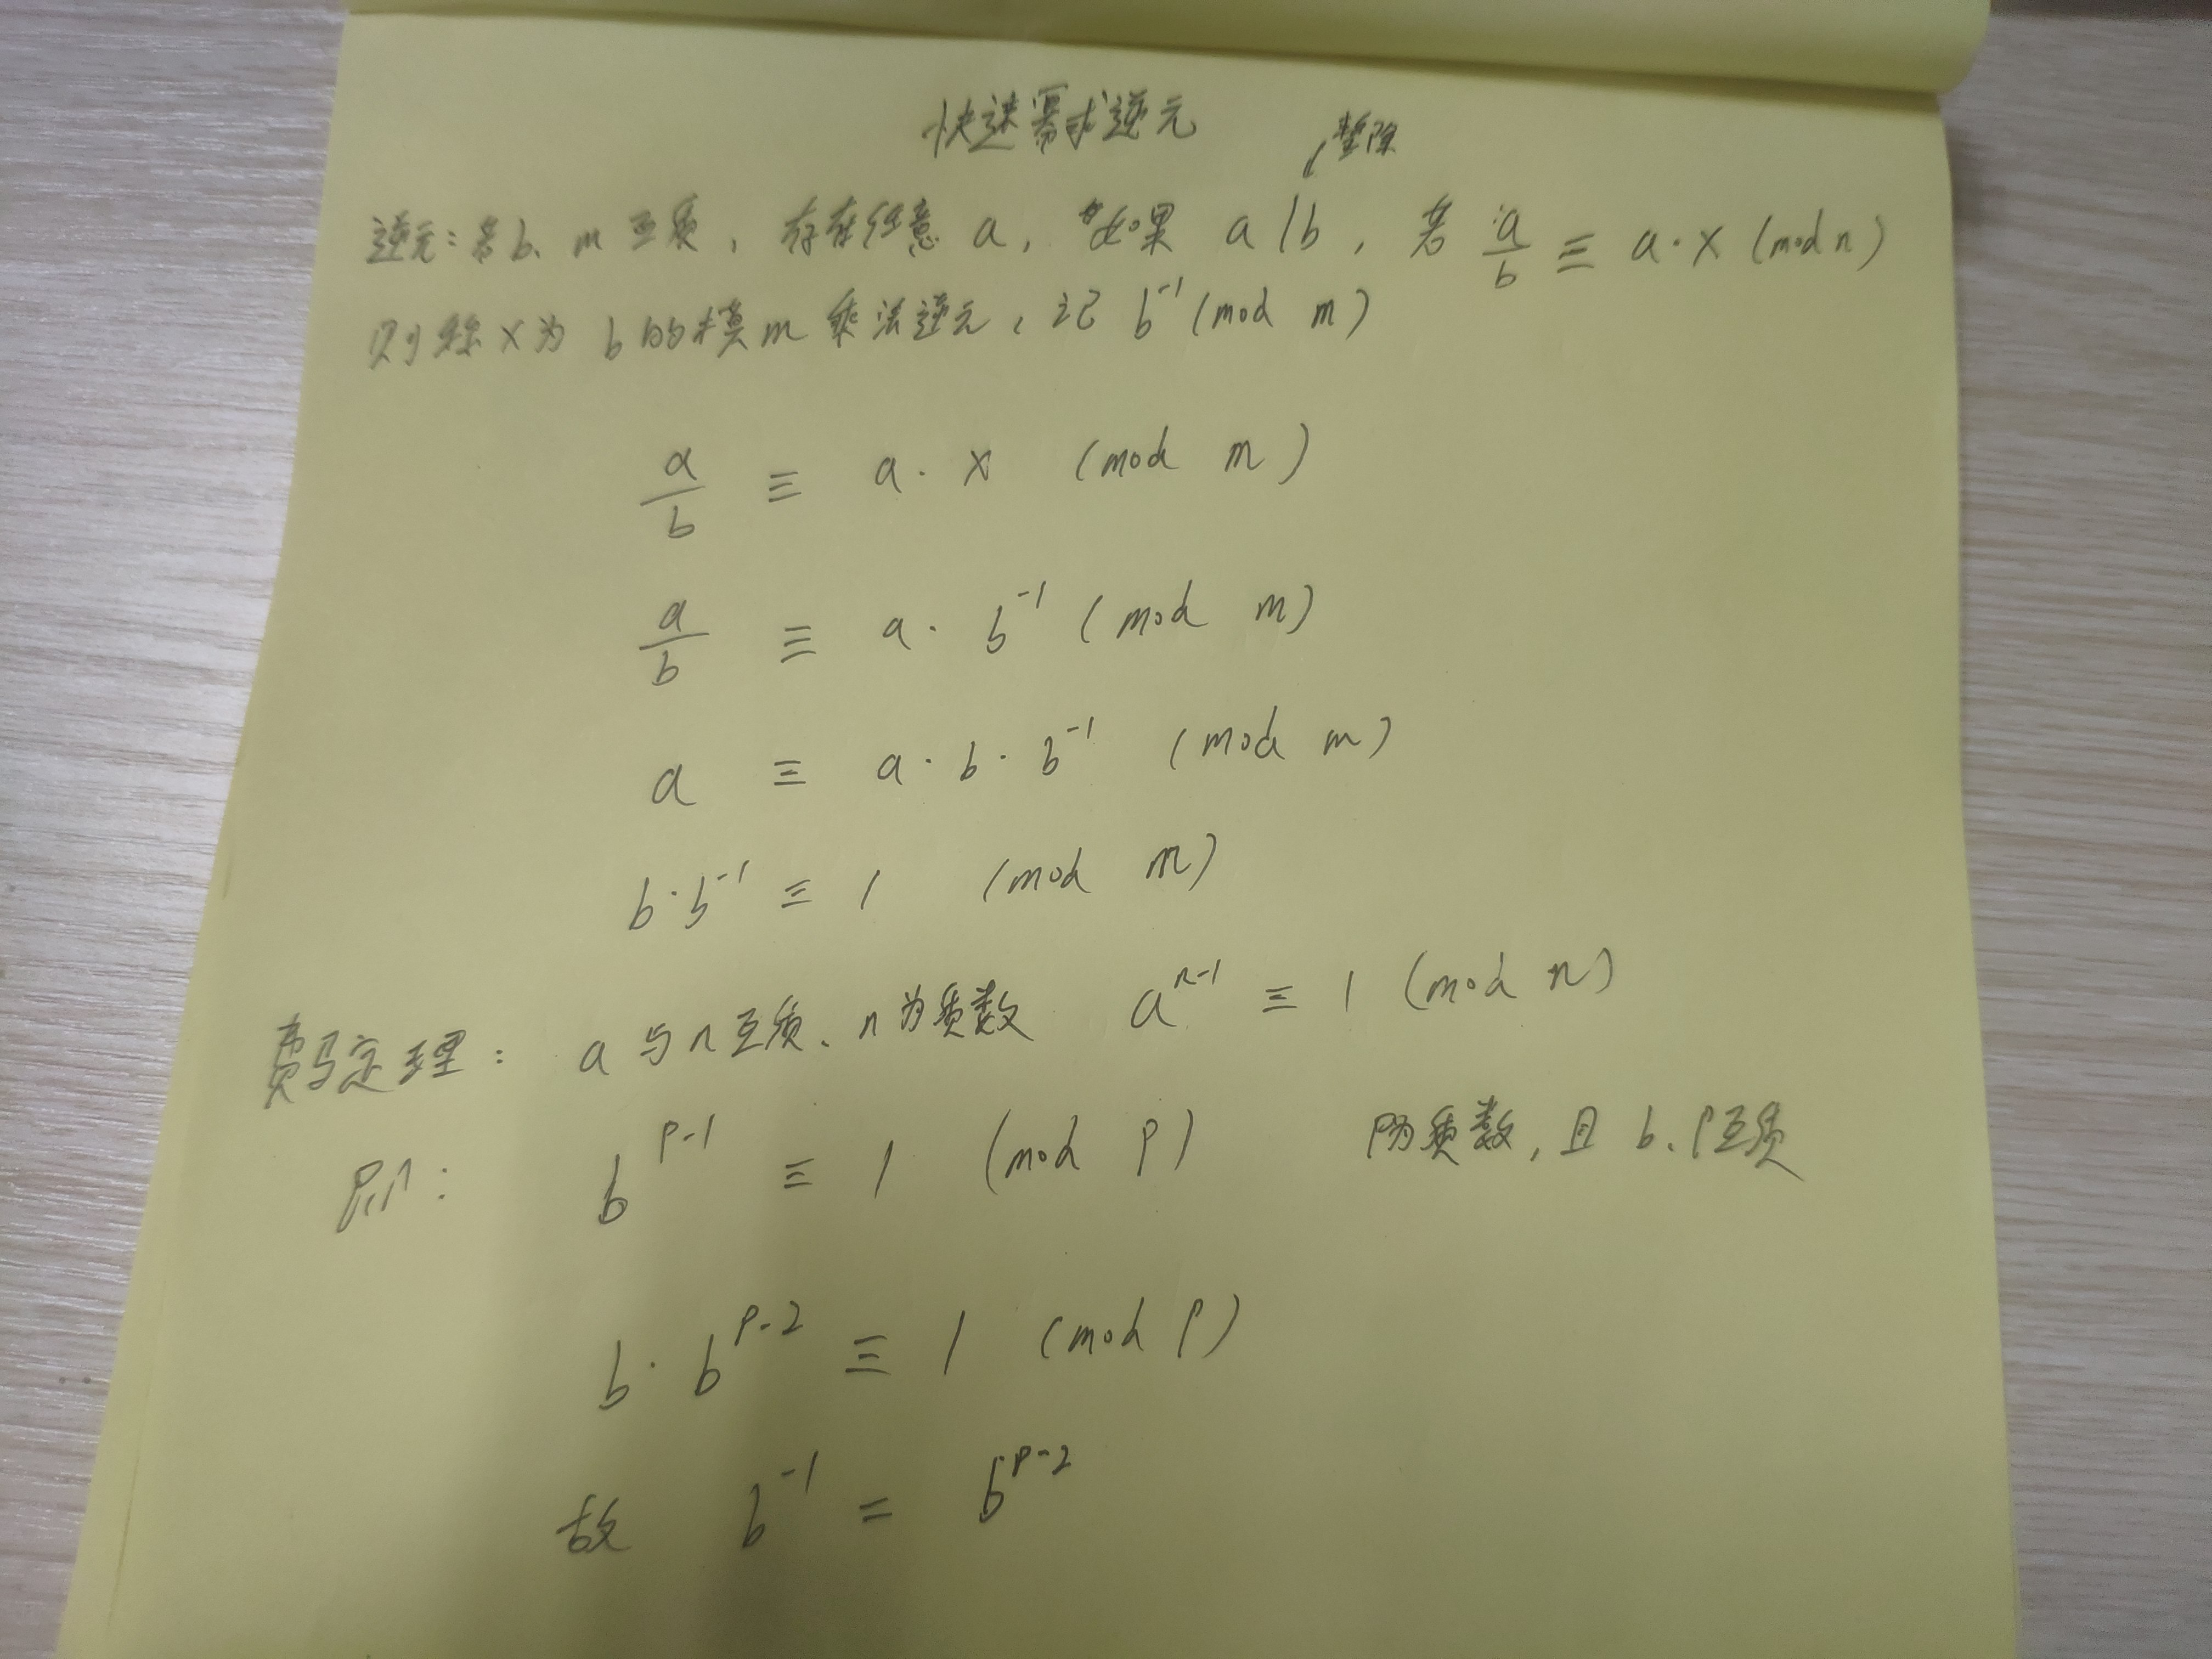 快速幂求逆元
整除
逆元：若b、m互质，存在任意a，如果 a|b，若 a/b ≡ a·x (mod n)
则称x为 b的模m乘法逆元，记 b⁻¹ (mod m)
a/b ≡ a·x (mod m)
a/b ≡ a·b⁻¹ (mod m)
a ≡ a·b·b⁻¹ (mod m)
b·b⁻¹ ≡ 1 (mod m)
费马定理： a与n互质、n为质数 aⁿ⁻¹ ≡ 1 (mod n)
即： b^(p-1) ≡ 1 (mod p) p为质数，且 b、p互质
b·b^(p-2) ≡ 1 (mod p)
故 b⁻¹ = b^(p-2)